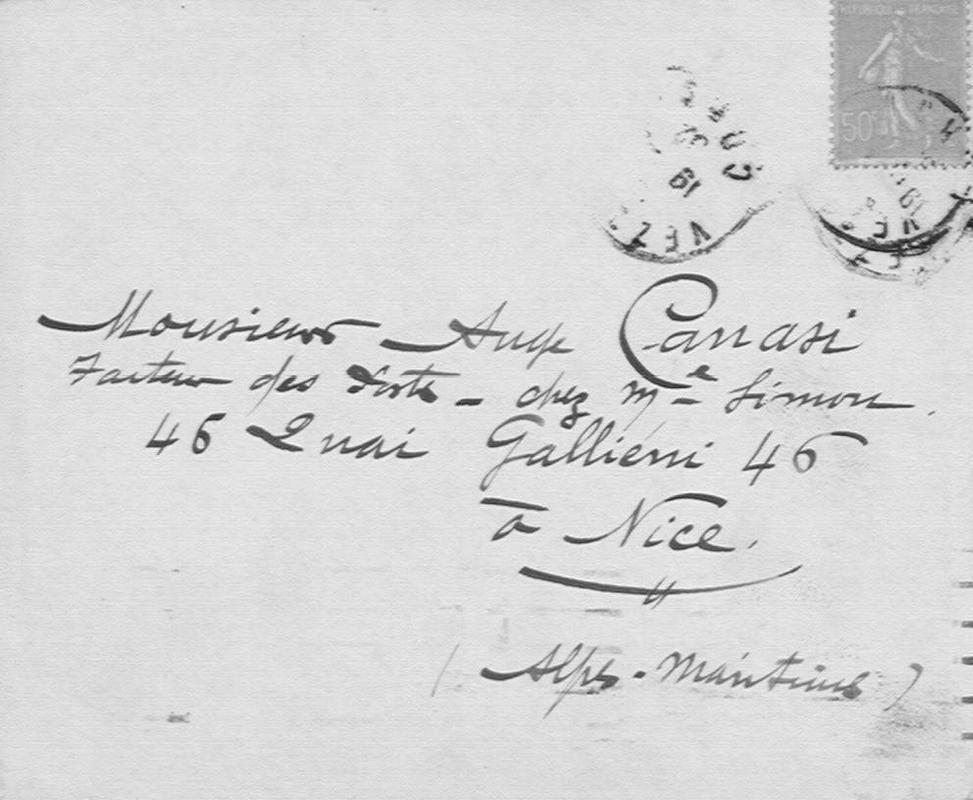 REPUBLIQUE FRANCAISE
50c
19
VEZ
Monsieur Ange Canasi
Facteur des Postes - chez Me Simon.
46 Quai Galliéni 46
à Nice.
(Alpes-Maritimes)